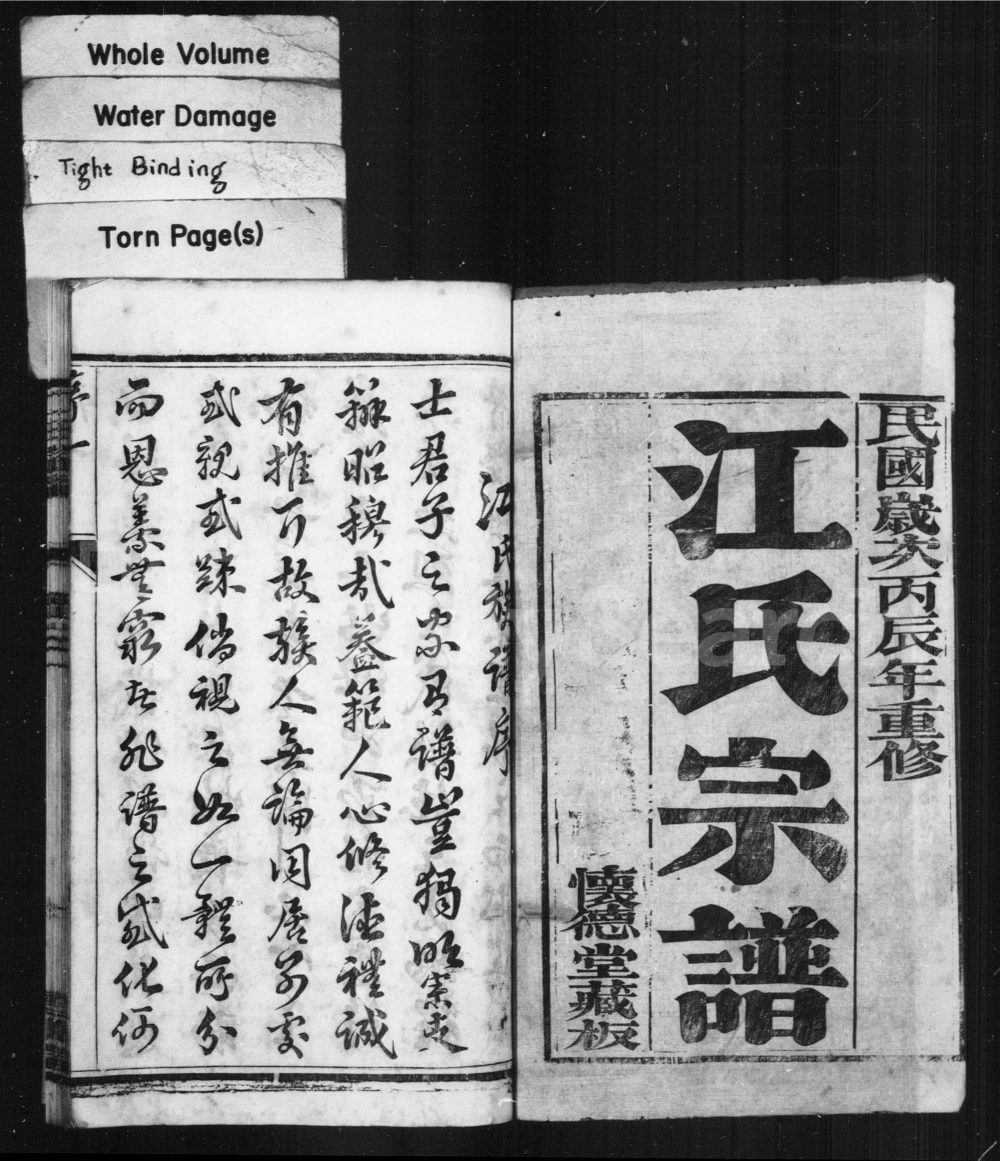 Whole Volume
Water Damage
Tight Binding
Torn Page(s)
民國歲次丙辰年重修
江氏宗譜
懷德堂藏板
江氏族譜序
士君子之家有譜豈獨明宗支
錄昭穆哉蓋範人心修德禮誠
有攸 故族人無論同居異處
或親或疎倘視之如一體所分
而恩義無窮者非譜之感化何
序 一